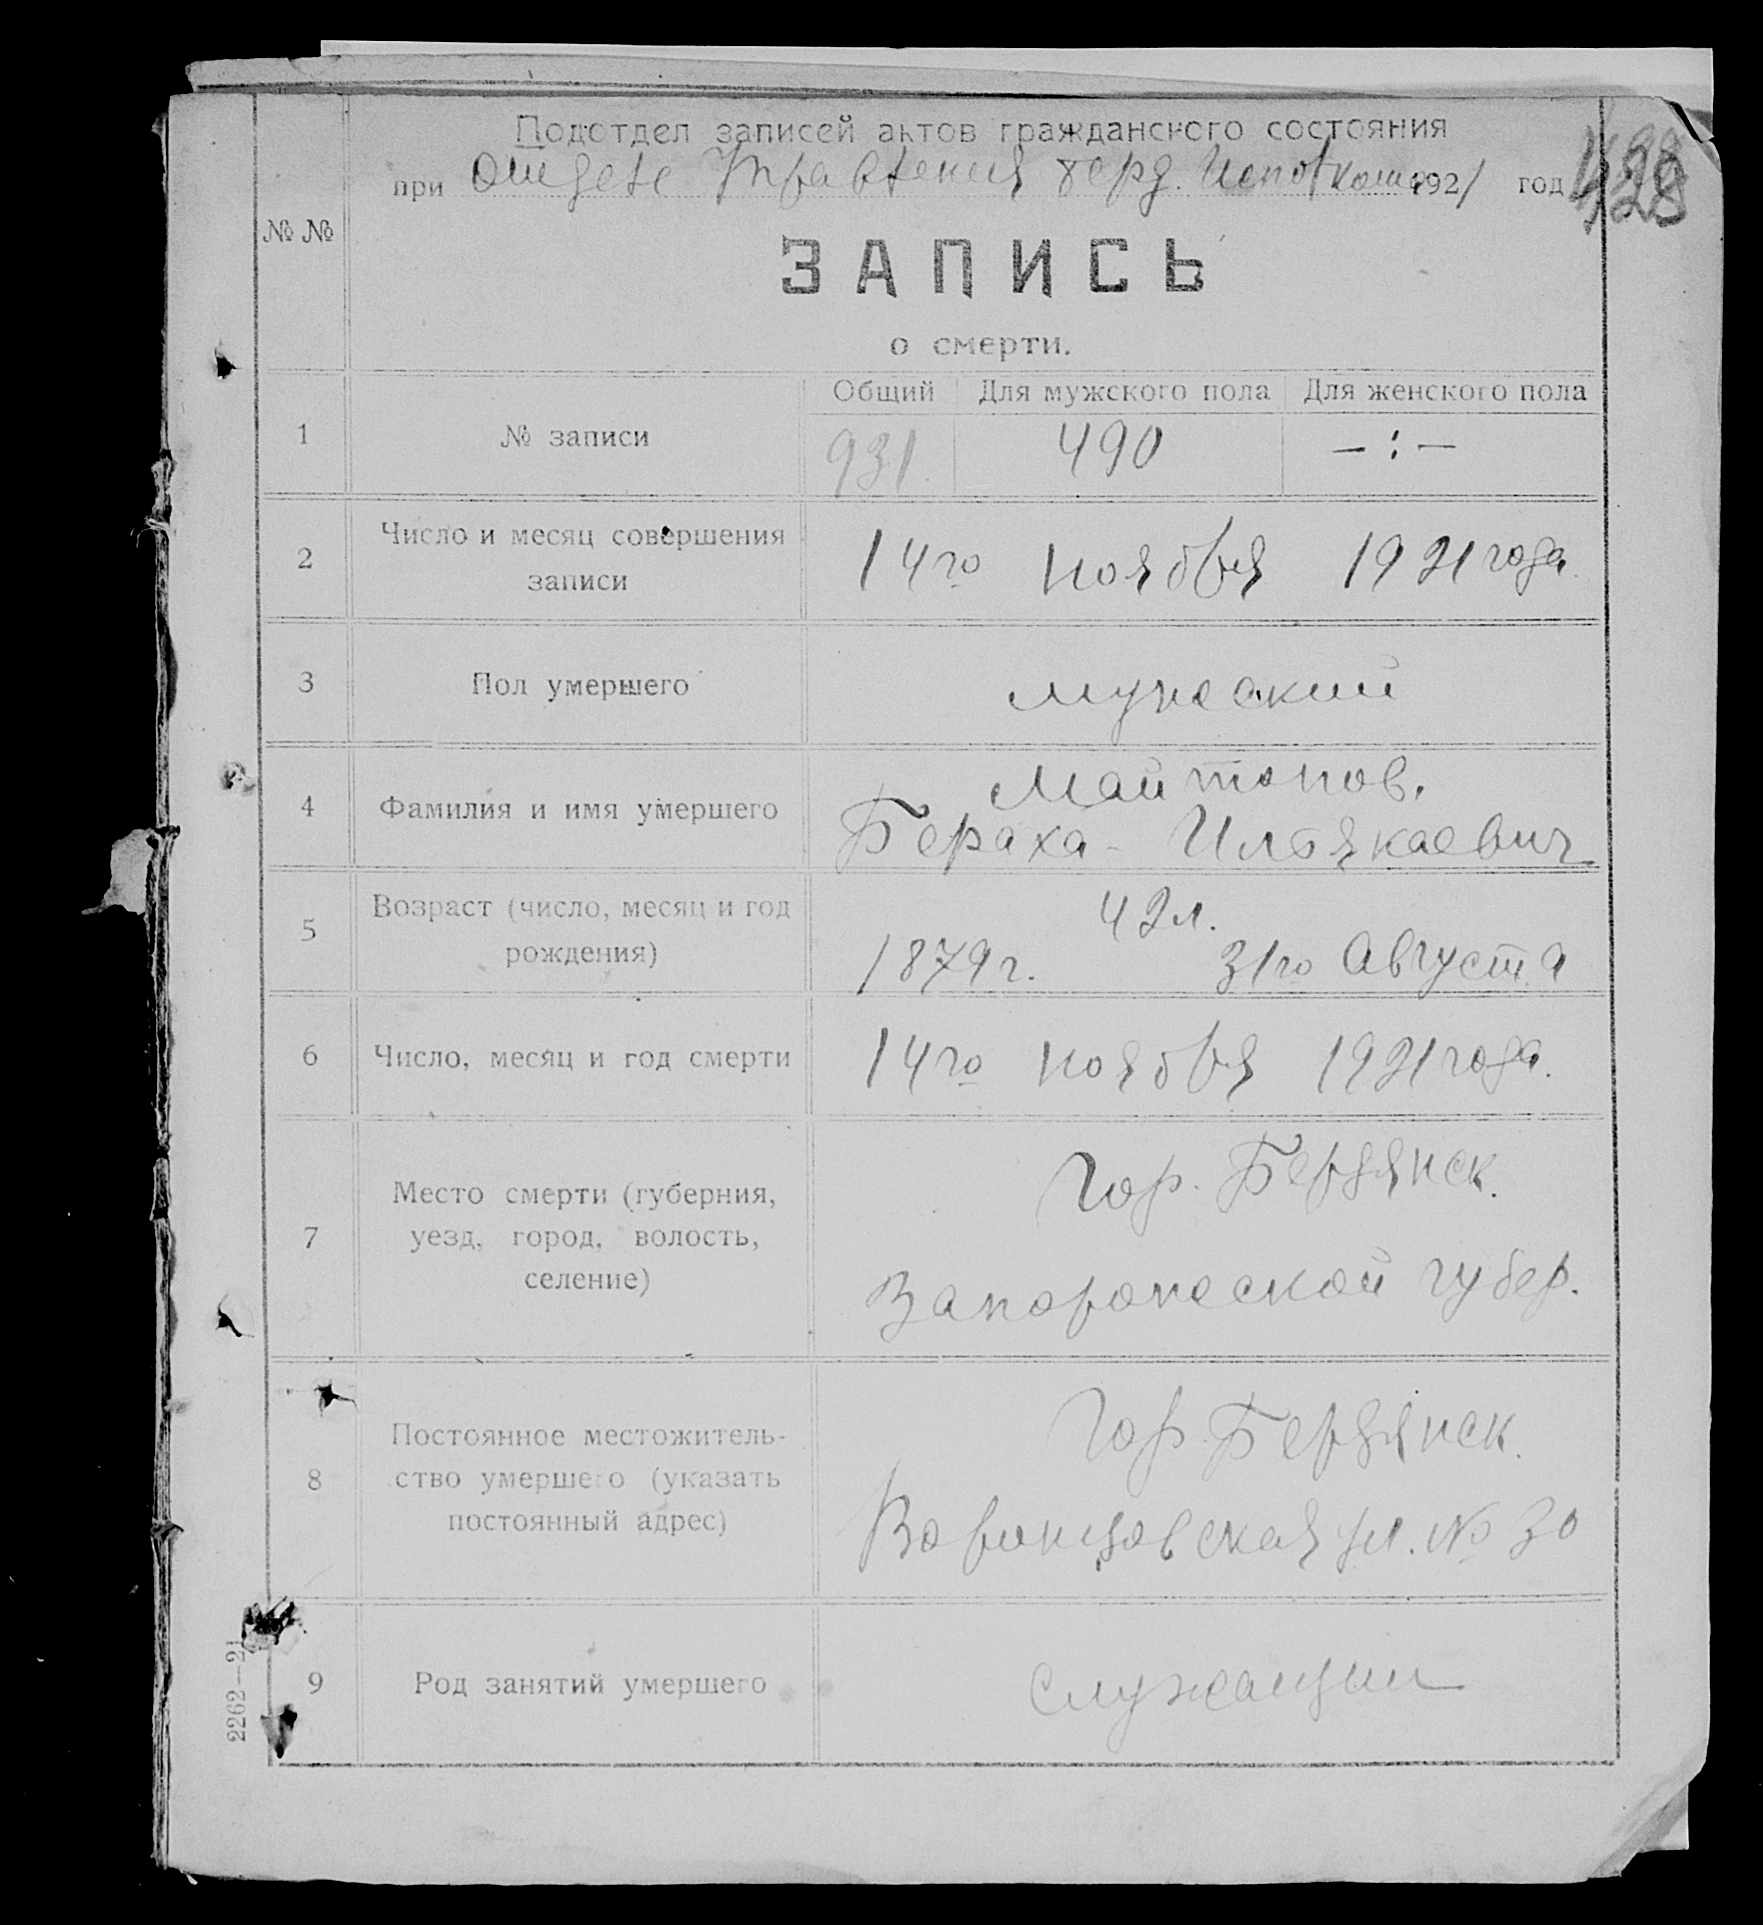 Подотдел записей актов гражданского состояния
при Отделе Управления берд. Исполкома 1921 год
№ №
ЗАПИСЬ
о смерти.
Общий Для мужского пола Для женского пола
1 № записи 931 490 — : —
2 Число и месяц совершения записи 14го ноября 1921 года
3 Пол умершего мужской
4 Фамилия и имя умершего Майтопов.
Бераха - Ильякаевич
5 Возраст (число, месяц и год рождения) 42 л.
1879 г. 31го Августа
6 Число, месяц и год смерти 14го ноября 1921 года.
7 Место смерти (губерния, уезд, город, волость, селение) Гор. Бердянск.
Запорожской губер.
8 Постоянное местожитель-
ство умершего (указать постоянный адрес) Гор. Бердянск.
Воронцовская ул. № 30
9 Род занятий умершего Служащий
2262—21